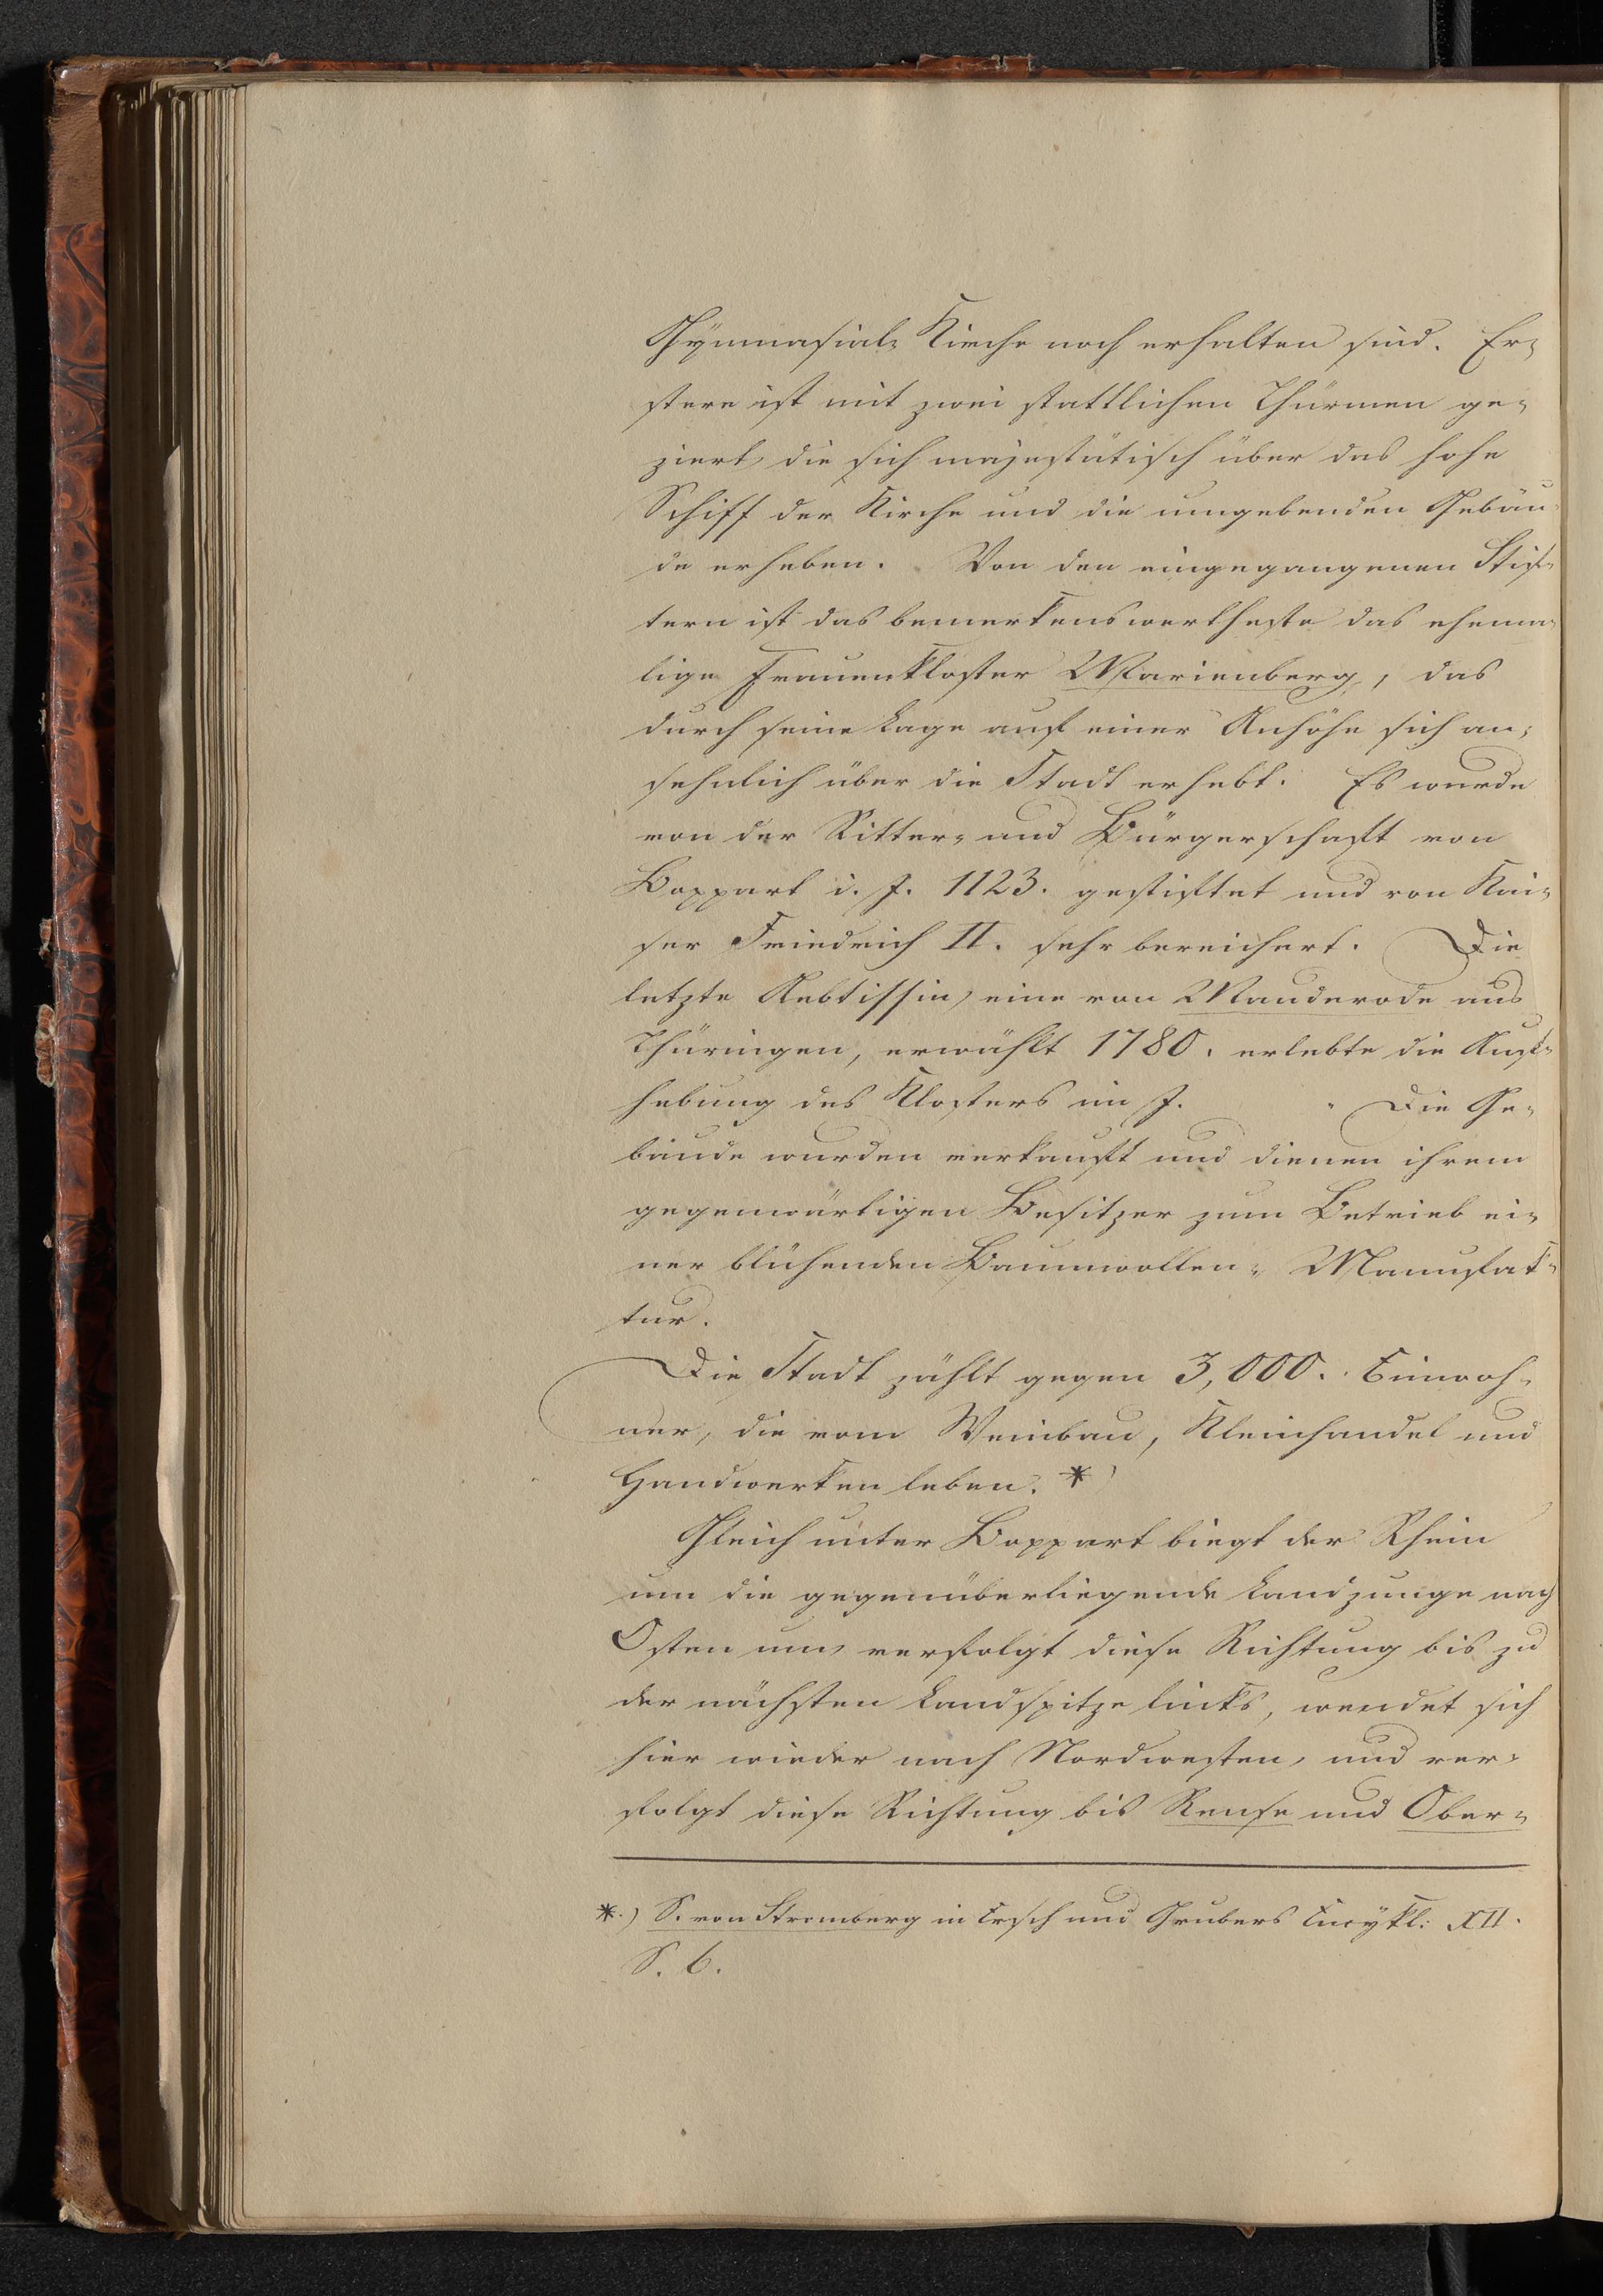 Gymnasial- Kirche noch erhalten sind. Er-
stere ist mit zwei stattlichen Thürmen ge-
ziert, die sich majestätisch über das hohe
Schiff der Kirche und die umgebenden Gebäu-
de erheben. Von den eingegangenen Stif-
tern ist das bemerkenswertheste das ehema-
lige Frauenkloster Marienberg, das
durch seine Lage auf einer Anhöhe sich an-
sehnlich über die Stadt erhebt. Es wurde
von der Ritter- und Bürgerschaft von
Boppart i. J. 1123. gestiftet und von Kai-
ser Friedrich II. sehr bereichert. Die
letzte Aebtissin, eine von Wanderode aus
Thüringen, erwählt 1780. erlebte die Auf-
hebung des Klosters im J. . Die Ge-
bäude wurden verkauft und dienen ihrem
gegenwärtigen Besitzer zum Betrieb ei-
ner blühenden Baumwollen- Manufak-
tur.
Die Stadt zählt gegen 3,000. Einwoh-
ner, die vom Weinbau, Kleinhandel und
Handwerken leben. *)
Gleich unter Boppart biegt der Rhein
um die gegenüberliegende Landzunge nach
Osten um, verfolgt diese Richtung bis zu
der nächsten Landspitze links, wendet sich
hier wieder nach Nordwesten, und ver-
folgt diese Richtung bis Rense und Ober-
*.) S. von Stromberg in Ersch und Grubers Encykl: XII.
S. 6.